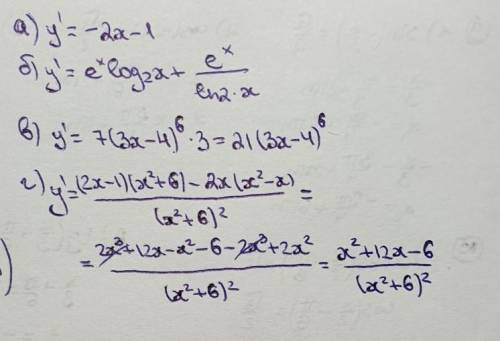 а) y' = -2x-1
б) y' = eˣ log₂x + eˣ/(ln2·x)
в) y' = 7(3x-4)⁶·3 = 21(3x-4)⁶
г) y' = ((2x-1)(x²+6) - 2x(x²-x))/(x²+6)² =
= (2x³+12x-x²-6-2x³+2x²)/(x²+6)² = (x²+12x-6)/(x²+6)²